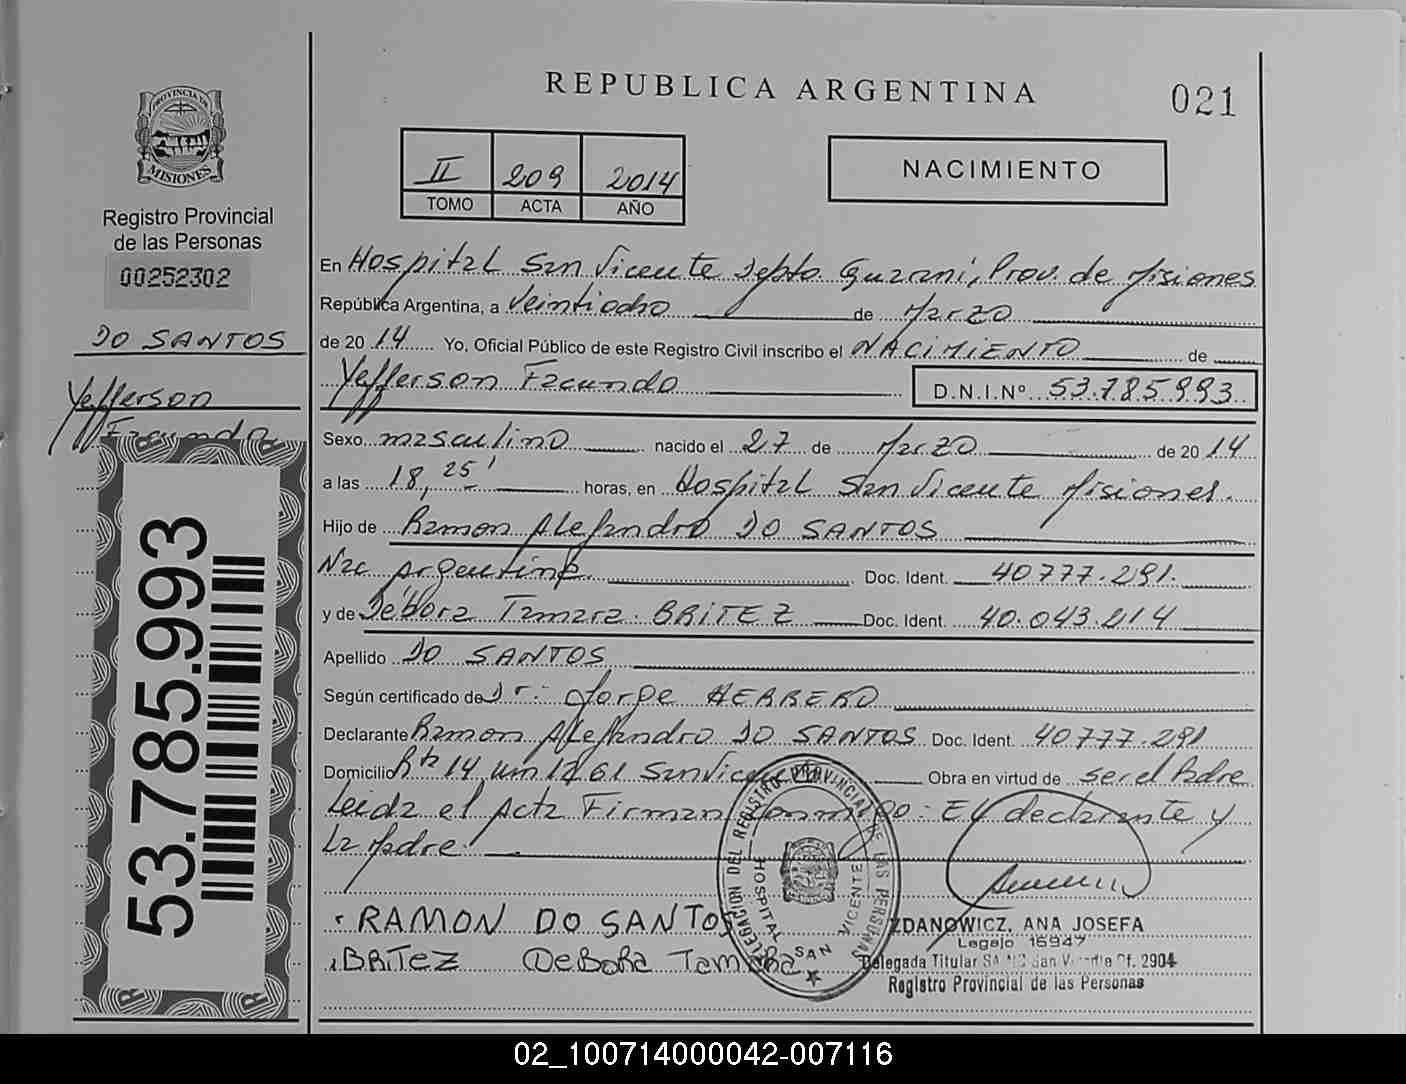 REPUBLICA ARGENTINA
021
PROVINCIA DE
MISIONES
Registro Provincial
de las Personas
00252302
DO SANTOS
Yefferson
Facundo
53.785.993
II 209 2014
TOMO ACTA AÑO
NACIMIENTO
En Hospital San Vicente Depto. Guarani, Prov. de Misiones
República Argentina, a Veintiocho de Marzo
de 20 14 Yo, Oficial Público de este Registro Civil inscribo el NACIMIENTO de
Yefferson Facundo D.N.I.Nº 53.785.993
Sexo masculino nacido el 27 de Marzo de 20 14
a las 18,25' horas, en Hospital San Vicente Misiones.
Hijo de Ramon Alejandro DO SANTOS
Nac Argentino Doc. Ident. 40777.291.
y de Débora Tamara BRITEZ Doc. Ident. 40.043.214
Apellido DO SANTOS
Según certificado de Dr. Jorge HERRERO
Declarante Ramon Alejandro DO SANTOS Doc. Ident. 40777.291
Domicilio 14 1261 San Vicente Obra en virtud de ser el Padre
Leida el Acta Firman conmigo: El declarante y
La Madre
RAMON DO SANTOS
BRITEZ DeBoRa TamaRa
DELEGACION DEL REGISTRO PROVINCIAL DE LAS PERSONAS
HOSPITAL SAN VICENTE
ZDANOWICZ, ANA JOSEFA
Legajo 16947
Delegada Titular San Vicente Of. 2904
Registro Provincial de las Personas
02_100714000042-007116